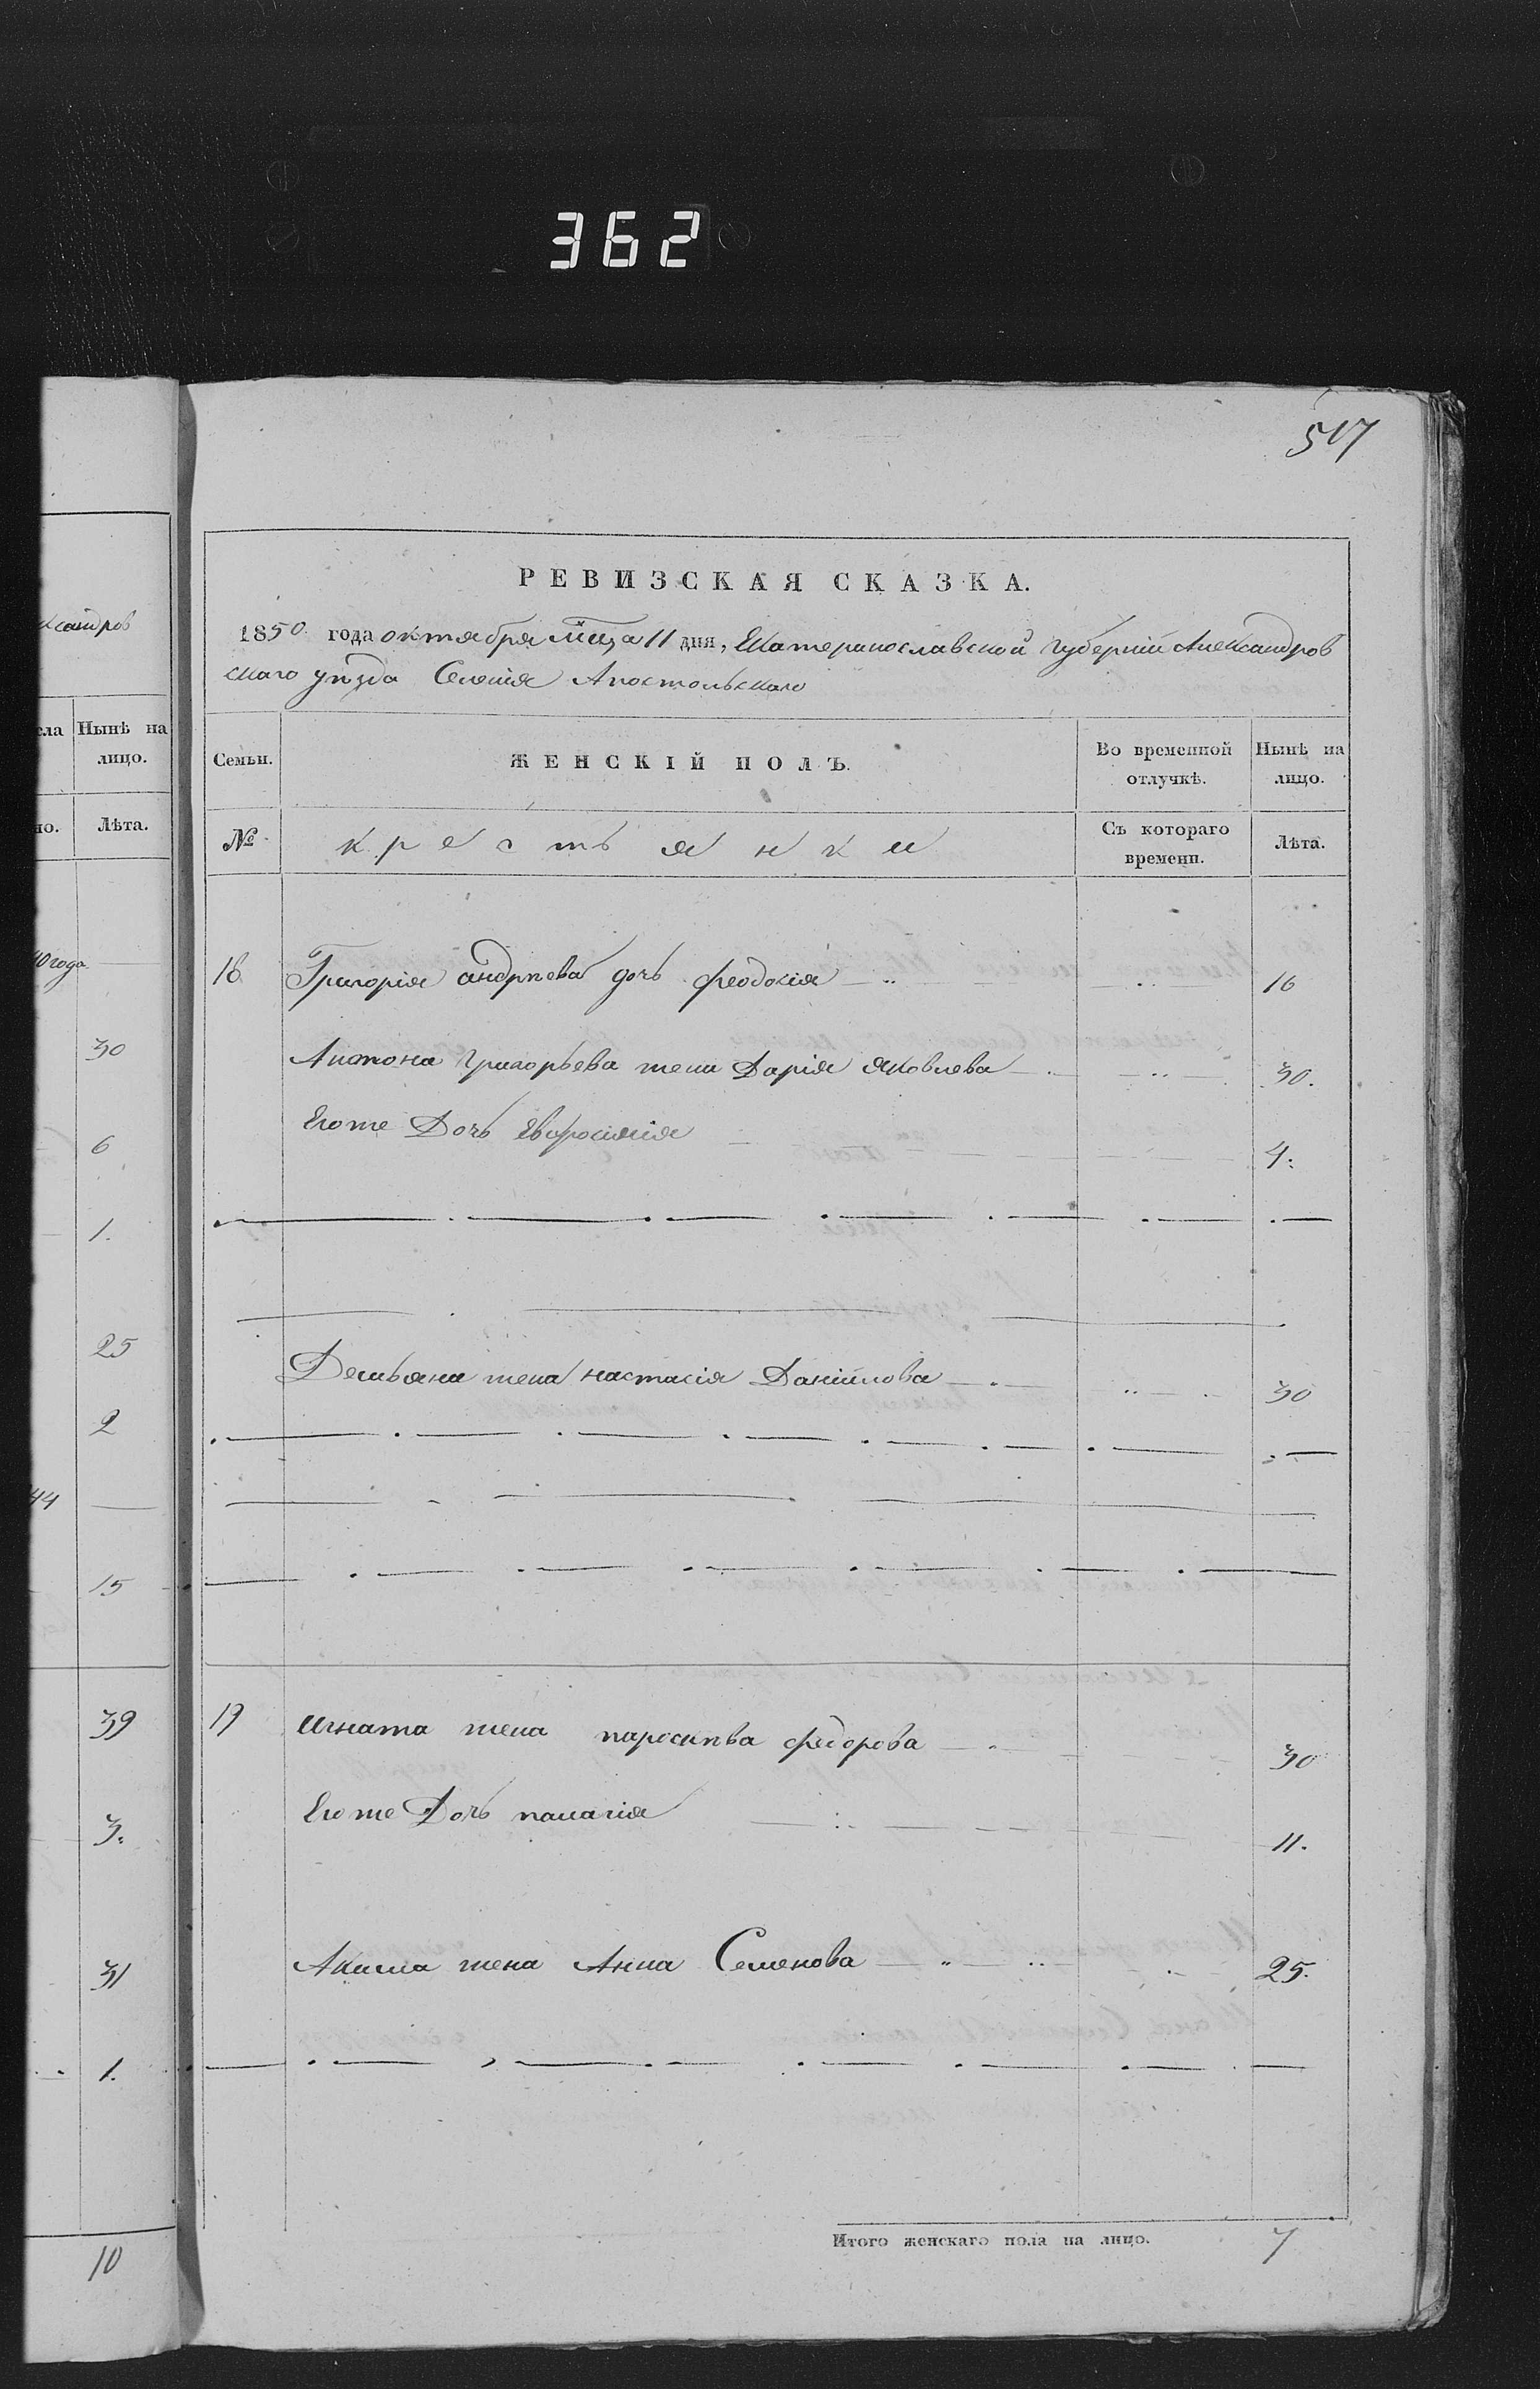 362
517
ксандров
сла
Нынѣ на
лицо.
но.
Лѣта.
40 года
30
6
1.
25
2
44
15
39
3.
31
1.
10
РЕВИЗСКАЯ СКАЗКА.
1850 года октября Мца 11 дня, Екатеринославской губернiй Александров
скаго уѣзда Селенiя Апостольскаго
Семьи.
ЖЕНСКІЙ ПОЛЪ.
Во временной
отлучкѣ.
Нынѣ на
лицо.
№
крестьянки
Съ котораго
времени.
Лѣта.
18 Григорiя андрѣева дочь феодосiя 16
Антона григорьева жена Дарiя яковлева 30.
Его же Дочь Евфросинiя 4.
Демьяна жена настасiя Данiйлова 30
19 Игната жена пароскѣва федорова 30
Его же Дочь палагiя 11.
Акима жена Анна Семенова 25.
Итого женскаго пола на лицо. 7